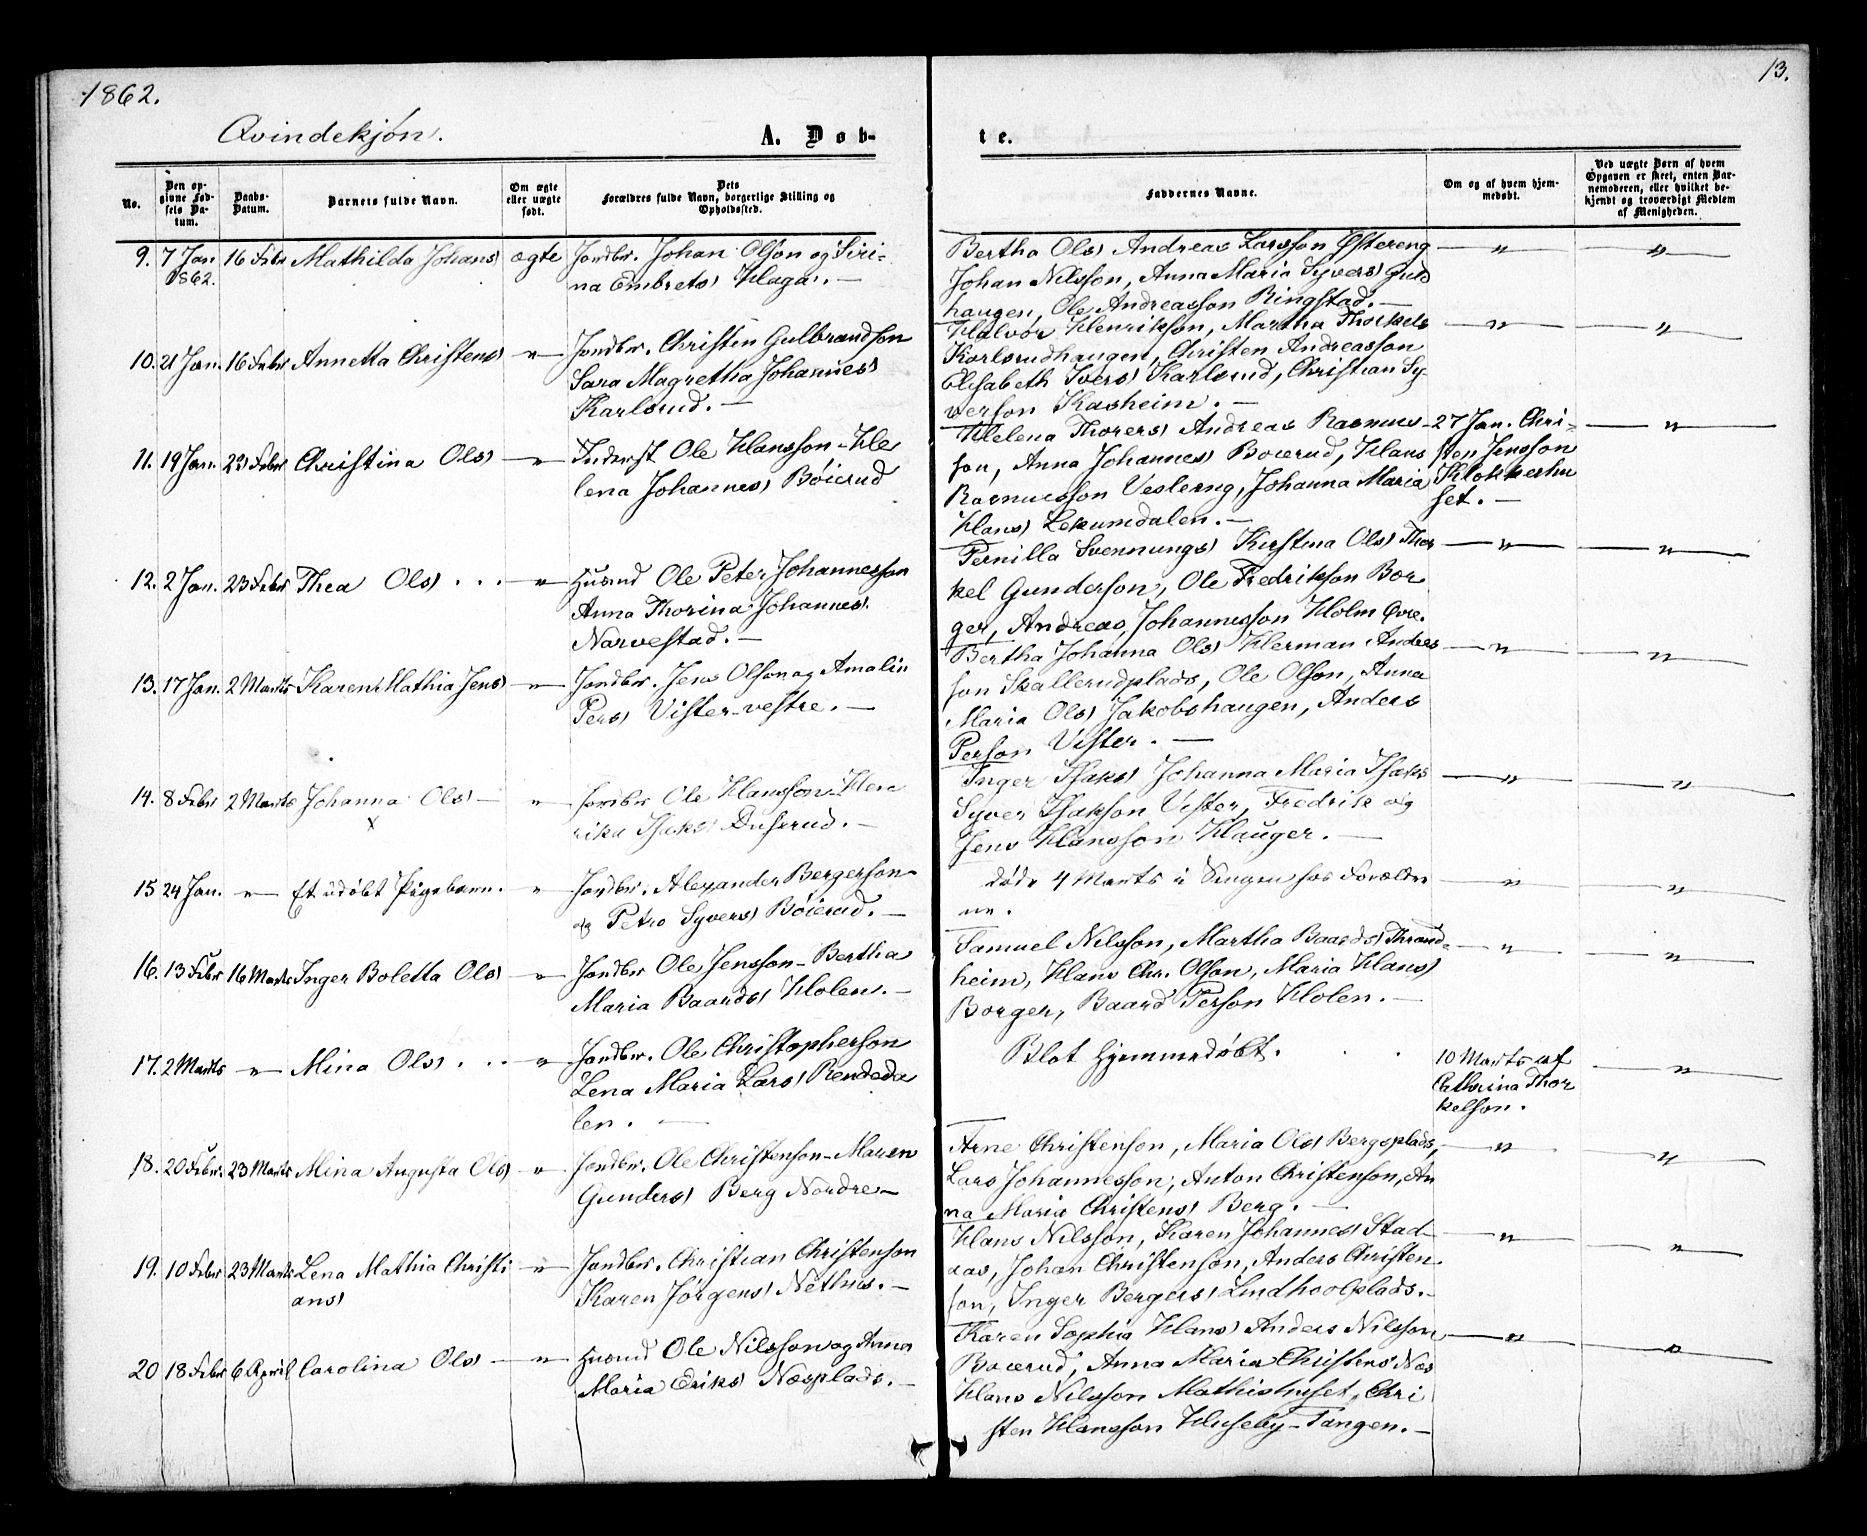 1862.
13.
Qvindekjøn.
A. Døb-
te.
No.
Den opgivne Fødsels Datum.
Daabs-Datum.
Barnets fulde Navn.
Om ægte eller uægte født.
Dets Forældres fulde Navn, borgerlige Stilling og Opholdssted.
Faddernes Navne.
Om og af hvem hjemmedøbt.
Ved uægte Børn af hvem Opgaven er skeet, enten Barnemoderen, eller hvilket bekjendt og troværdigt Medlem af Menigheden.
9. 7 Jan 1862. 16 Febr Mathilda Johans) ægte
Jordbr. Johan Olson og Siri-
na Embrets) Haga. —
Bertha Ols) Andreas Larsson Østereng
Johan Nilsson, Anna Maria Syvers) Guld
haugen, Ole Andreasson Ringstad. —
— " — — " —
10. 21 Jan. 16 Febr Annetta Christens) — " —
Jordbr. Christen Gulbrandson
Sara Magretha Johannes)
Karlsrud. —
Halvor Henrikson, Martha Thorkels
Karlsrudhaugen, Christen Andreasson
Elisabeth Ivers) Karlsrud, Christian Sy-
verson Kasheim. —
— " — — " —
11. 19 Jan. 23 Febr Christina Ols) — " —
Inderst Ole Hansson - He
lena Johannes) Böierud
Helena Thorers) Andreas Rasmus-
son, Anna Johannes) Boierud, Hans
Rasmusson Vesleng, Johanna Maria
Hans) Lekumdalen. —
27 Jan. Chri-
sten Jensson
Klokkerhu
set. —
— " —
12. 2 Jan. 23 Febr Thea Ols) . . . — " —
Husmd Ole Peter Johannesson
Anna Thorina Johannes)
Narvestad. —
Pernilla Svennungs) Kirstina Ols) Thor
kel Gunderson, Ole Fredrikson Bor
ger, Andreas Johannesson Holm Øvre.
— " — — " —
13. 17 Jan. 2 Marts Karen Mathia Jens) — " —
Jordbr. Jens Olson og Amalia
Pers) Vister-vestre. —
Bertha Johanna Ols) Herman Andres
son Skallerudplads, Ole Olson, Anna
Maria Ols) Jakobshaugen, Anders
Person Vister. —
— " — — " —
14. 8 Febr 2 Marts Johanna Ols) — "
x
Jordbr Ole Hansson - Hen
rika Isaks) Duserud. —
Inger Isaks) Johanna Maria Isaks
Syver Isakson Vister, Fredrik og
Jens Hansson Hauger. —
— " — — " —
15 24 Jan. — " — Et udöbt Pigebarn. "
Jordbr. Alexander Bergerson
og Petro Syvers) Böierud. —
döde 4 Marts i Sengen hos Forældre
ne.
— " — — " —
16. 13 Febr 16 Marts Inger Boletta Ols) — " —
Jordbr Ole Jensson - Bertha
Maria Baards) Holen. —
Samuel Nilsson, Martha Baards) Thrond-
heim, Hans Chr. Olson, Maria Hans)
Borger, Baard Person Holen. —
— " — — " —
17. 2 Marts — " — Mina Ols) . . . — " —
Jordbr. Ole Christopherson
Lena Maria Lars) Rendeda
len. —
Blot hjemmedöbt. . .
10 Marts af
Cathrina Thor
kelson.
— " —
18. 20 Febr. 23 Marts Mina Augusta Ols) — " —
Jordbr. Ole Christenson - Maren
Gunders) Berg Nordre —
Arne Christenson, Maria Ols) Bergsplads,
Lars Johannesson, Anton Christenson, An
na Maria Christens) Berg. —
— " — — " —
19. 10 Febr 23 Marts Lena Mathia Christi
ans) — " —
Jordbr. Christian Christenson
Karen Jörgens) Nethus. —
Hans Nilsson, Karen Johannes) Stad-
aas, Johan Christenson, Anders Christen-
son, Inger Bergers) Lindhoolplads. —
— " — — " —
20 18 Febr 6 April Carolina Ols) — " —
Husmd Ole Nilsson og Anna
Maria Eriks) Næsplads. —
Karen Sophia Hans) Anders Nilsson
Boierud, Anna Maria Christens) Næs
Hans Nilsson Mathishuset, Chri
sten Hansson Huseby-Tangen. —
— " — — " —